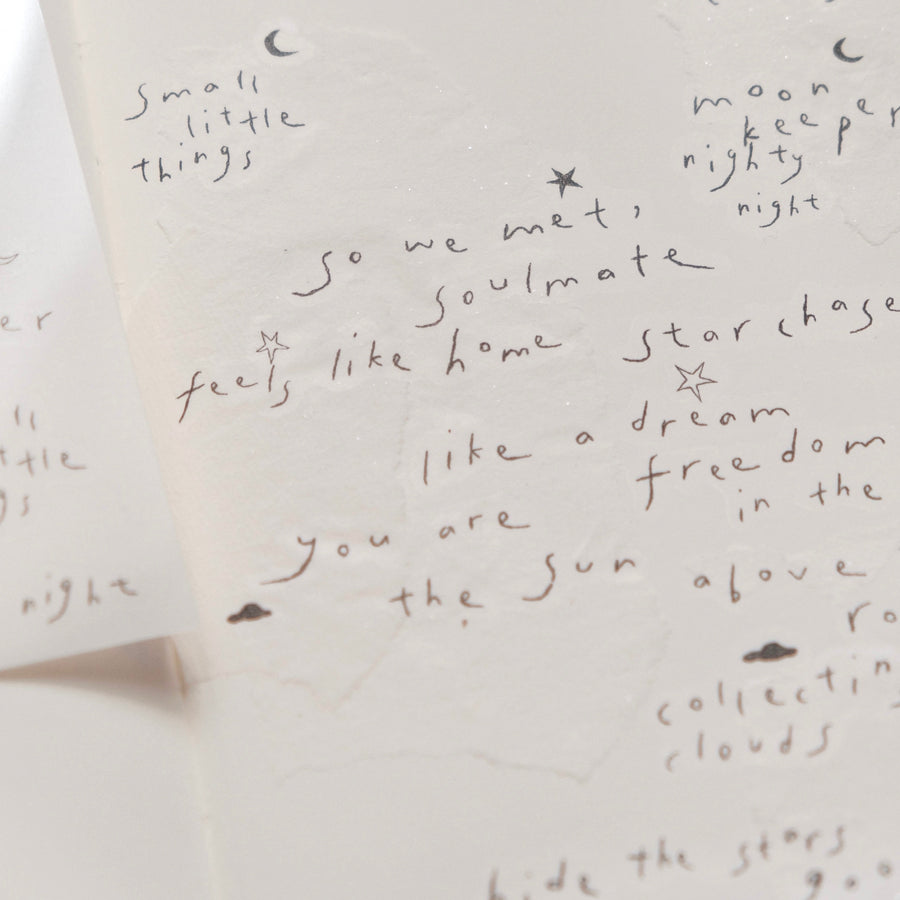 small
little
things
moon
keeper
nighty
night
so we met,
soulmate
feels like home
star chase
like a dream
freedom
in the
you are
the sun
above
ro
collectin
clouds
hide the stars
goo
er
ll
ttle
gs
night